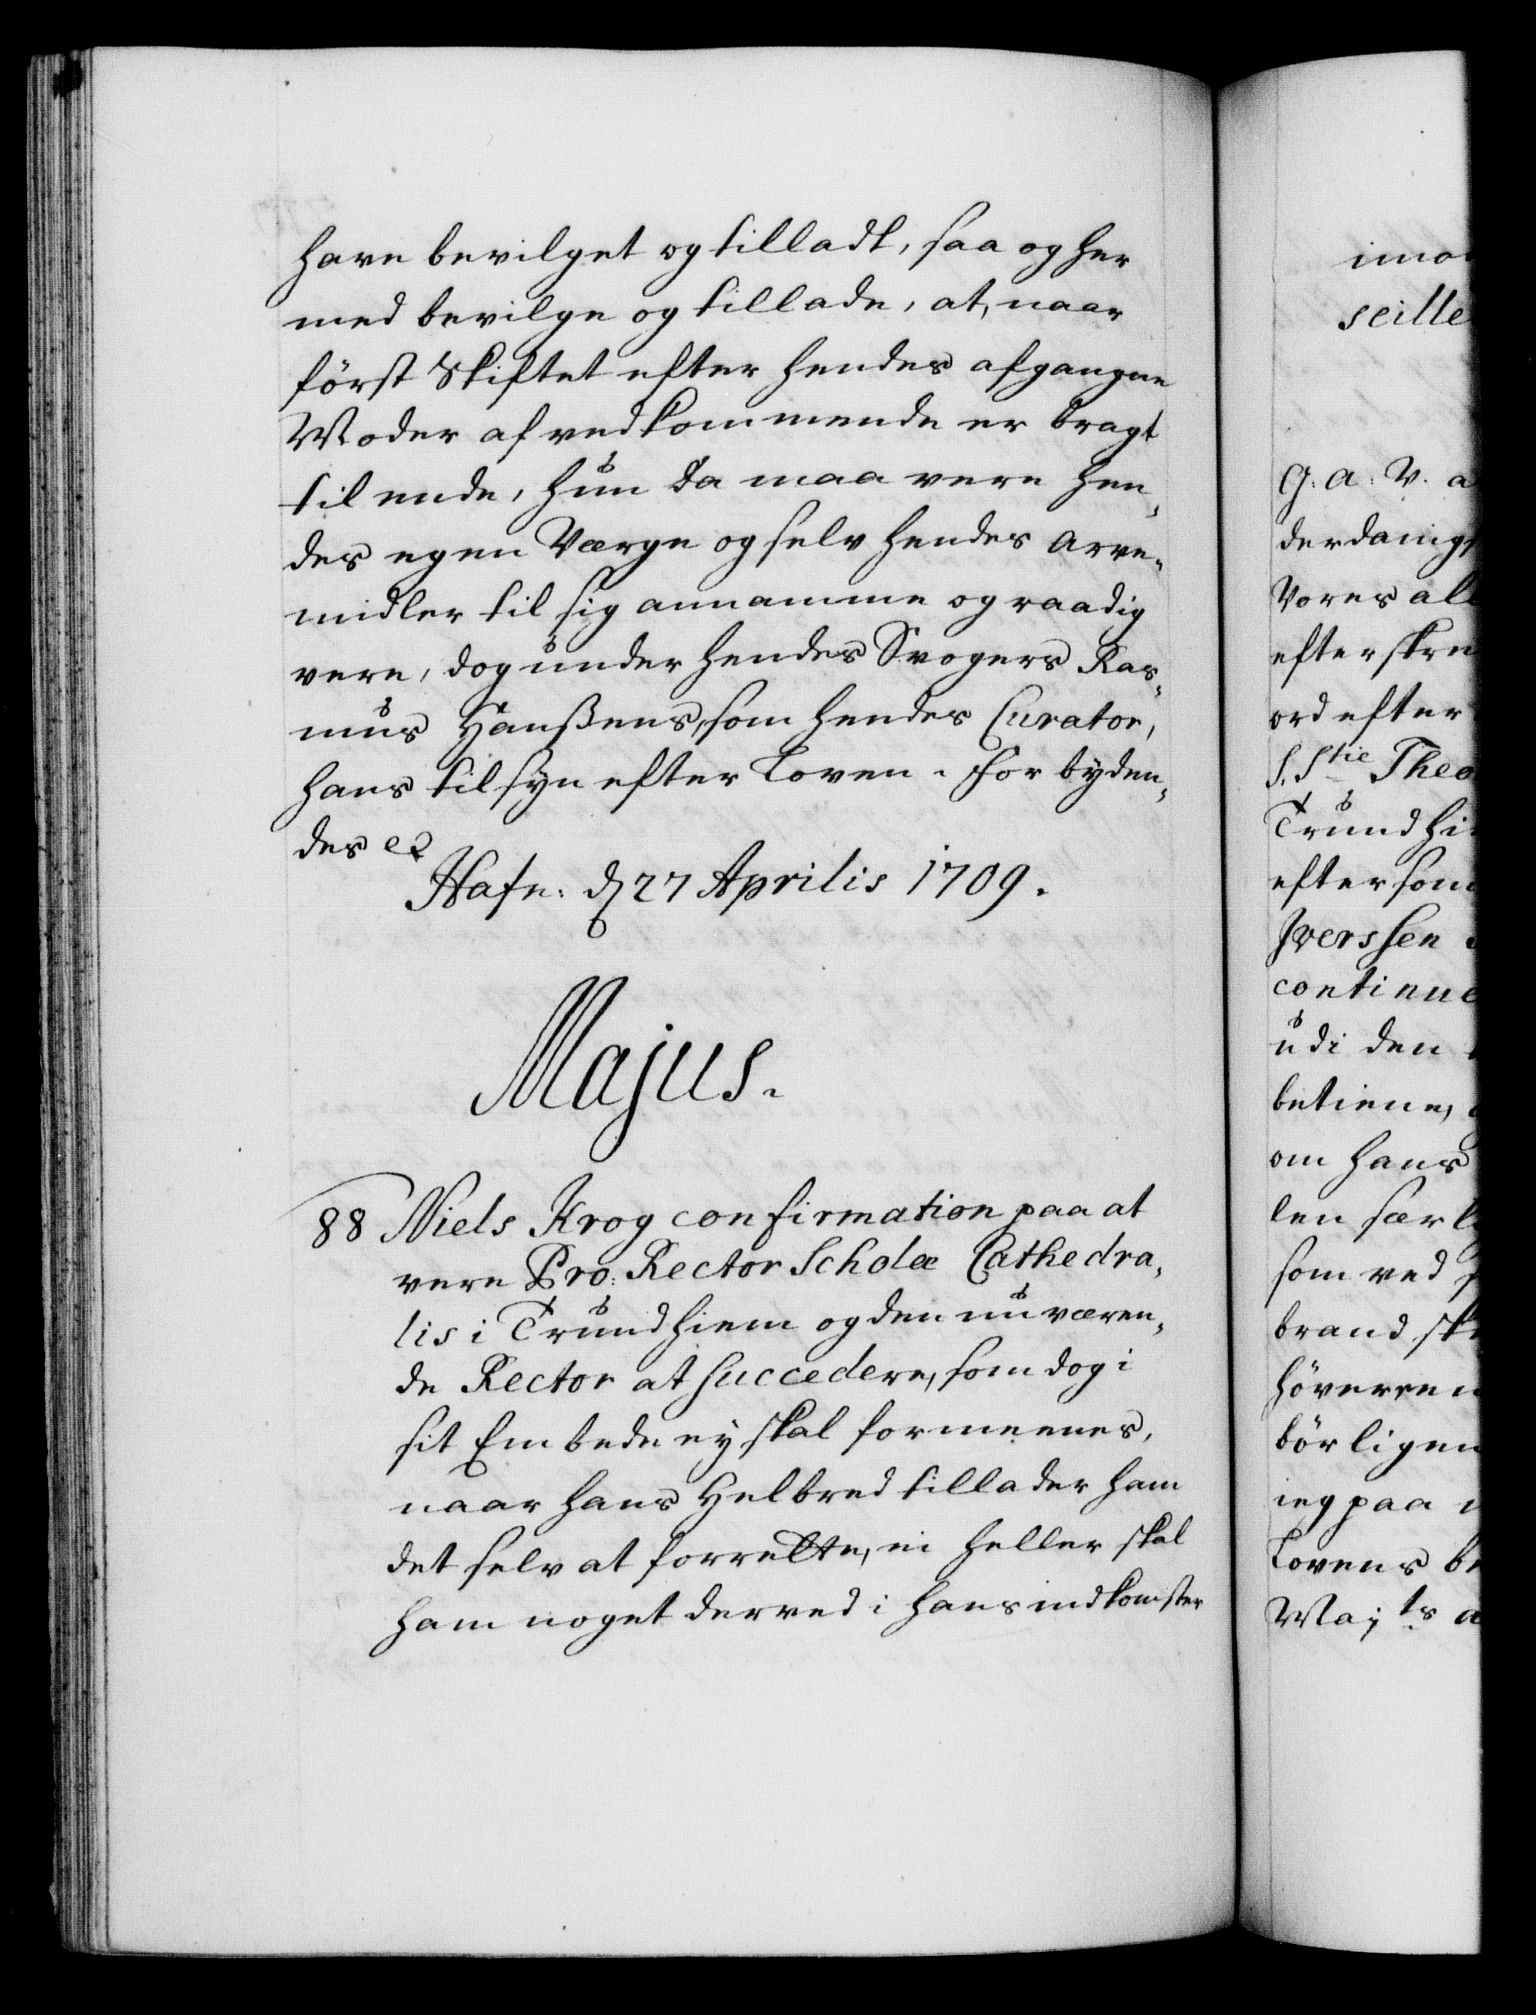 have bevilget og tilladt, saa og her
med bevilge og tillade, at, naar
först Skiftet efter hendes afgangne
Moder af vedkommende er bragt
til ende, hun da maa vere hen,
des egen Værge og selv hendes Arve,
midler til sig annamme og raadig
vere, dog under hendes Svogers Ras,
mus Hanßens, som hendes Curator,
hans tilsyn efter Loven. Forbyden,
des ec
Hafn: d 27 Aprilis 1709.
Majus.
88 Niels Krog confirmation paa at
vere Pro: Rector Scholæ Cathedra,
lis i Trundhiem og den nu væren,
de Rector at succedere, som dog i
sit Embede ey skal formeenes,
naar hans Helbred tillader ham
det selv at forrette, ei heller skal
ham noget derved i hans indkomster
imo
seille
G. A. V. a
derdanigs
Vores all
efterskre
ord efter
S. Stie Theo
Trundhi
eftersom
Iverssen
continue
udi den
betiene,
om hans
len særl
som ved
brand sk
höverren
börligen
ieg paa
Lovens be
Majts a